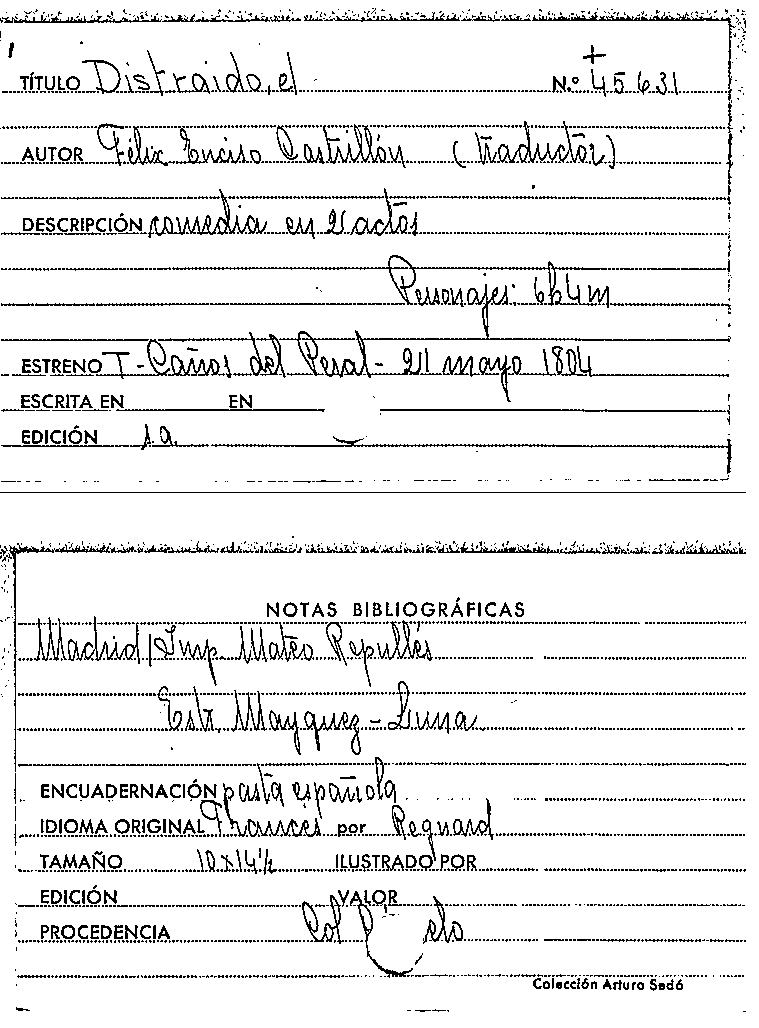 TÍTULO Distraido, el N.º + 45631
AUTOR Félix Enciso Castrillón (traductor)
DESCRIPCIÓN comedia en 2 actos
Personajes: 6h4m
ESTRENO T - Caños del Peral - 21 mayo 1804
ESCRITA EN EN
EDICIÓN s.a.
NOTAS BIBLIOGRÁFICAS
Madrid/Imp Mateo Repullés
Estr. Mayquez - Luna
ENCUADERNACIÓN pasta española
IDIOMA ORIGINAL Francés por Regnard
TAMAÑO 10x14½ ILUSTRADO POR
EDICIÓN VALOR
PROCEDENCIA Col
Colección Arturo Sedó